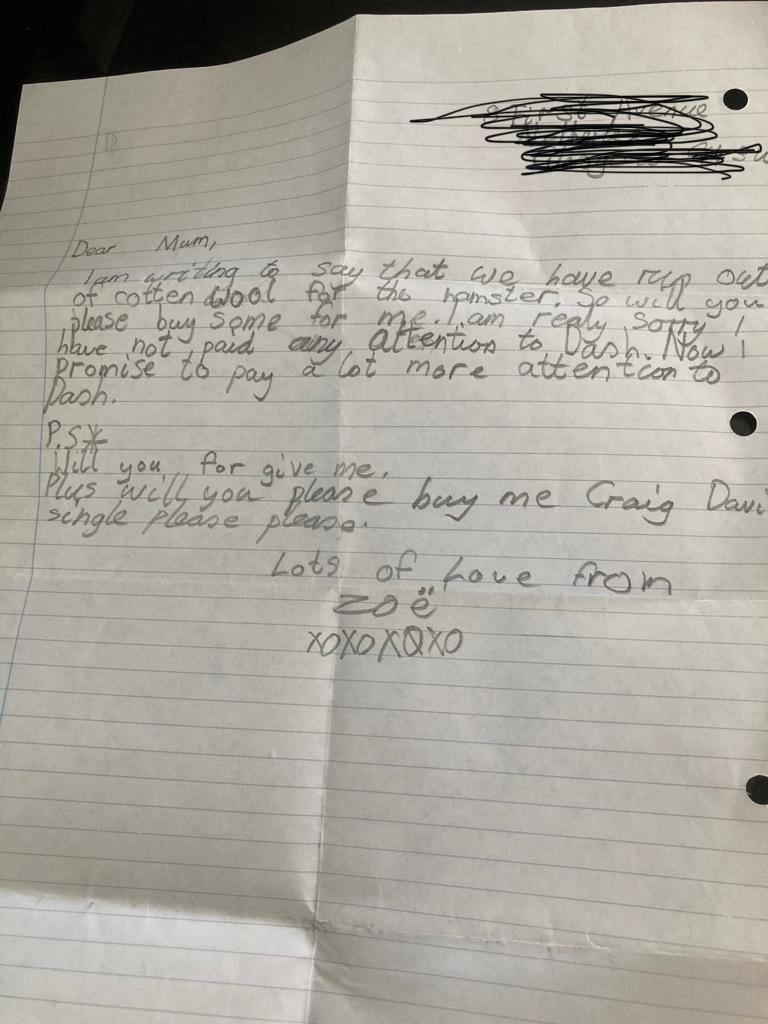 Dear Mum,
I am writing to say that we have run out
of cotten wool for the hamster. So will you
please buy some for me. I am realy sorry I
have not paid any attention to Dash. Now I
promise to pay a lot more attention to
Dash.
P.S*
Will you for give me.
Plus will you please buy me Craig Davi
single please please.
Lots of Love from
Zoë
XOXOXOXO